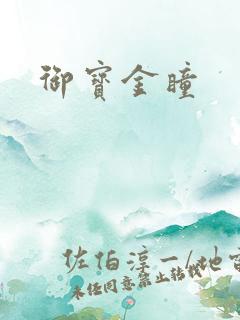 御寳金瞳
佐伯淳一/地
未任同意禁止转载